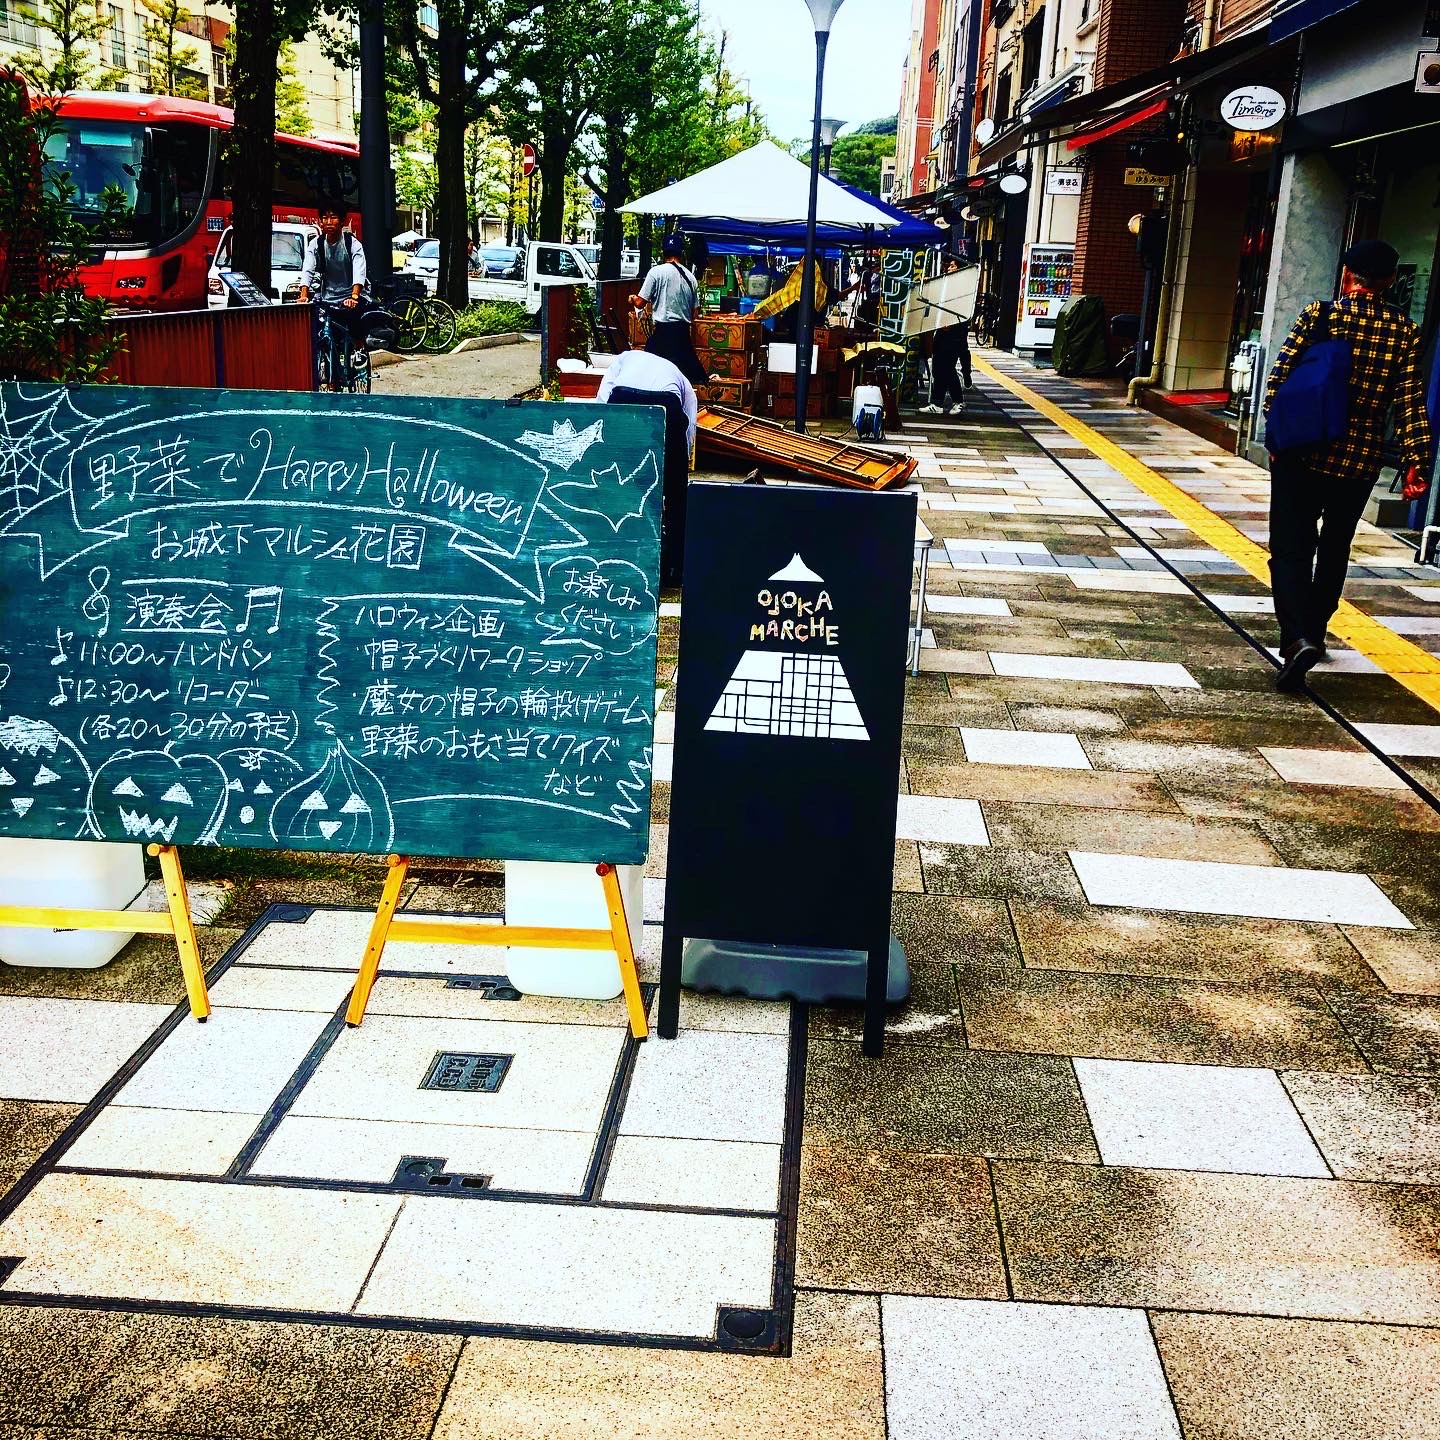 野菜でHappyHalloween
お城下マルシェ花園
お楽しみ
ください
演奏会
11:00～ハンドパン
12:30～リコーダー
(各20～30分の予定)
ハロウィン企画
・帽子づくりワークショップ
・魔女の帽子の輪投げゲーム
・野菜のおもさ当てクイズ
など
OJOKA
MARCHE
Timone